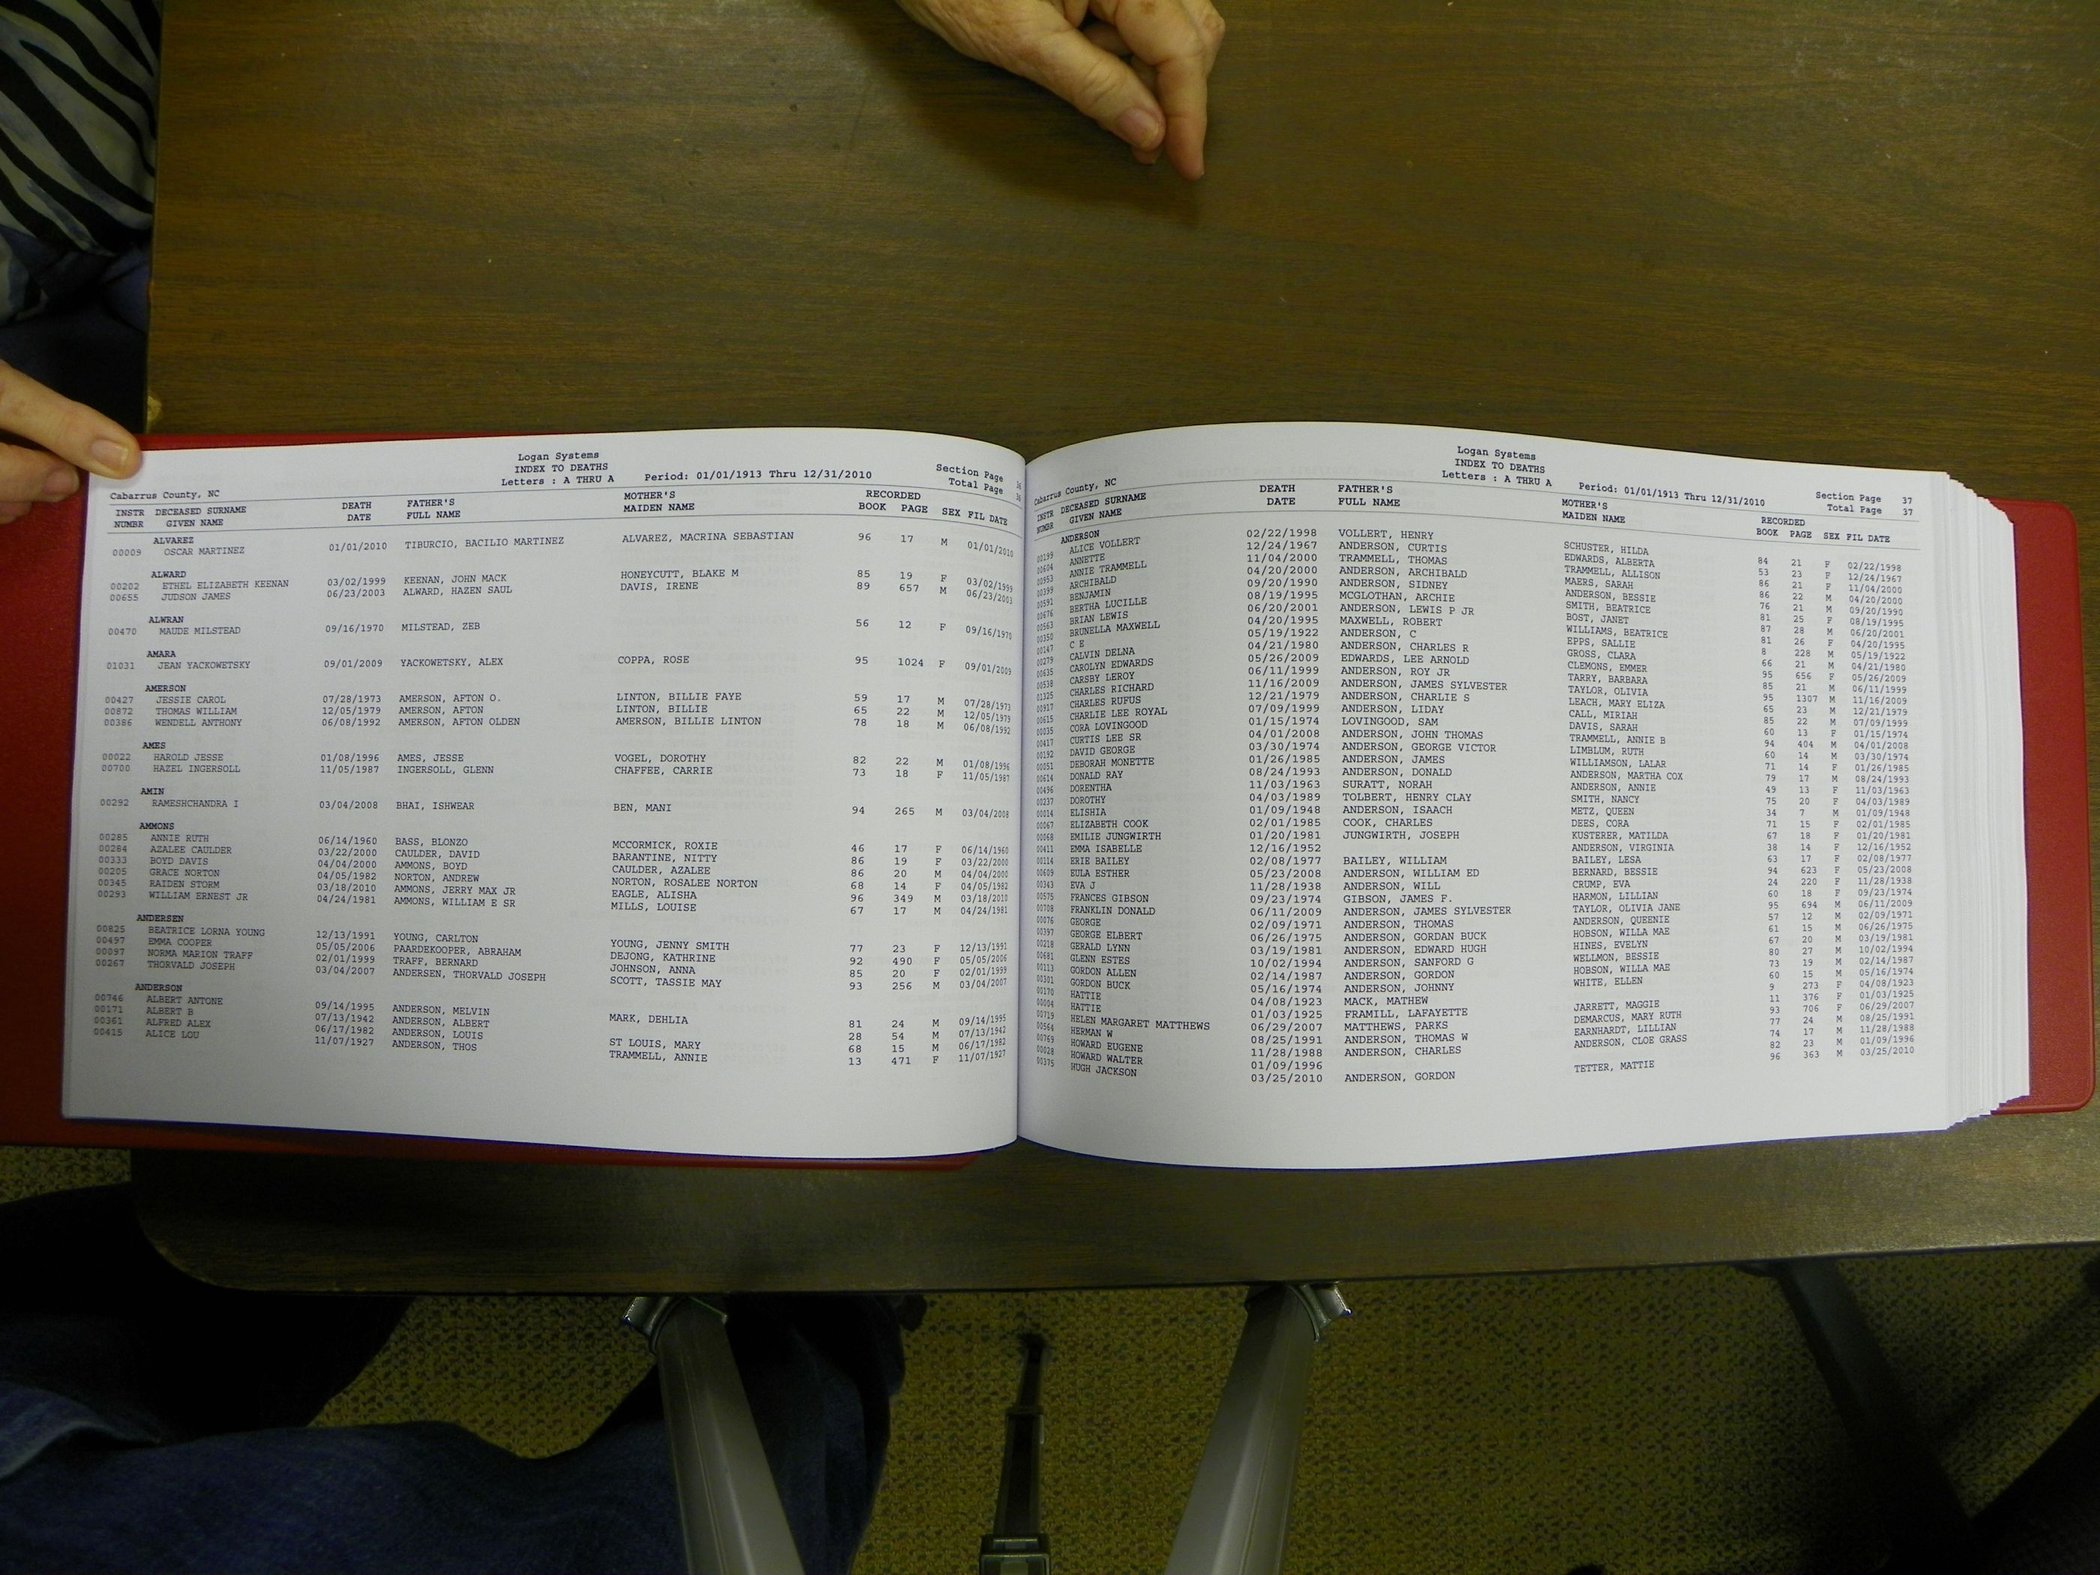 Logan Systems
INDEX TO DEATHS
Letters : A THRU A Period: 01/01/1913 Thru 12/31/2010 Section Page 36
Total Page 36
Cabarrus County, NC
INSTR DECEASED SURNAME DEATH FATHER'S MOTHER'S RECORDED
NUMBR GIVEN NAME DATE FULL NAME MAIDEN NAME BOOK PAGE SEX FIL DATE
ALVAREZ
00009 OSCAR MARTINEZ 01/01/2010 TIBURCIO, BACILIO MARTINEZ ALVAREZ, MACRINA SEBASTIAN 96 17 M 01/01/2010
ALWARD
00202 ETHEL ELIZABETH KEENAN 03/02/1999 KEENAN, JOHN MACK HONEYCUTT, BLAKE M 85 19 F 03/02/1999
00655 JUDSON JAMES 06/23/2003 ALWARD, HAZEN SAUL DAVIS, IRENE 89 657 M 06/23/2003
ALWRAN
00470 MAUDE MILSTEAD 09/16/1970 MILSTEAD, ZEB 56 12 F 09/16/1970
AMARA
01031 JEAN YACKOWETSKY 09/01/2009 YACKOWETSKY, ALEX COPPA, ROSE 95 1024 F 09/01/2009
AMERSON
00427 JESSIE CAROL 07/28/1973 AMERSON, AFTON O. LINTON, BILLIE FAYE 59 17 M 07/28/1973
00872 THOMAS WILLIAM 12/05/1979 AMERSON, AFTON LINTON, BILLIE 65 22 M 12/05/1979
00386 WENDELL ANTHONY 06/08/1992 AMERSON, AFTON OLDEN AMERSON, BILLIE LINTON 78 18 M 06/08/1992
AMES
00022 HAROLD JESSE 01/08/1996 AMES, JESSE VOGEL, DOROTHY 82 22 M 01/08/1996
00700 HAZEL INGERSOLL 11/05/1987 INGERSOLL, GLENN CHAFFEE, CARRIE 73 18 F 11/05/1987
AMIN
00292 RAMESHCHANDRA I 03/04/2008 BHAI, ISHWEAR BEN, MANI 94 265 M 03/04/2008
AMMONS
00285 ANNIE RUTH 06/14/1960 BASS, BLONZO MCCORMICK, ROXIE 46 17 F 06/14/1960
00284 AZALEE CAULDER 03/22/2000 CAULDER, DAVID BARANTINE, NITTY 86 19 F 03/22/2000
00333 BOYD DAVIS 04/04/2000 AMMONS, BOYD CAULDER, AZALEE 86 20 M 04/04/2000
00205 GRACE NORTON 04/05/1982 NORTON, ANDREW NORTON, ROSALEE NORTON 68 14 F 04/05/1982
00345 RAIDEN STORM 03/18/2010 AMMONS, JERRY MAX JR EAGLE, ALISHA 96 349 M 03/18/2010
00293 WILLIAM ERNEST JR 04/24/1981 AMMONS, WILLIAM E SR MILLS, LOUISE 67 17 M 04/24/1981
ANDERSEN
00825 BEATRICE LORNA YOUNG 12/13/1991 YOUNG, CARLTON YOUNG, JENNY SMITH 77 23 F 12/13/1991
00497 EMMA COOPER 05/05/2006 PAARDEKOOPER, ABRAHAM DEJONG, KATHRINE 92 490 F 05/05/2006
00097 NORMA MARION TRAFF 02/01/1999 TRAFF, BERNARD JOHNSON, ANNA 85 20 F 02/01/1999
00267 THORVALD JOSEPH 03/04/2007 ANDERSEN, THORVALD JOSEPH SCOTT, TASSIE MAY 93 256 M 03/04/2007
ANDERSON
00746 ALBERT ANTONE 09/14/1995 ANDERSON, MELVIN MARK, DEHLIA 81 24 M 09/14/1995
00171 ALBERT B 07/13/1942 ANDERSON, ALBERT 28 54 M 07/13/1942
00361 ALFRED ALEX 06/17/1982 ANDERSON, LOUIS ST LOUIS, MARY 68 15 M 06/17/1982
00415 ALICE LOU 11/07/1927 ANDERSON, THOS TRAMMELL, ANNIE 13 471 F 11/07/1927
Logan Systems
INDEX TO DEATHS
Letters : A THRU A Period: 01/01/1913 Thru 12/31/2010 Section Page 37
Total Page 37
Cabarrus County, NC
INSTR DECEASED SURNAME DEATH FATHER'S MOTHER'S RECORDED
NUMBR GIVEN NAME DATE FULL NAME MAIDEN NAME BOOK PAGE SEX FIL DATE
ANDERSON
00199 ALICE VOLLERT 02/22/1998 VOLLERT, HENRY SCHUSTER, HILDA 84 21 F 02/22/1998
00604 ANNETTE 12/24/1967 ANDERSON, CURTIS EDWARDS, ALBERTA 53 23 F 12/24/1967
00953 ANNIE TRAMMELL 11/04/2000 TRAMMELL, THOMAS TRAMMELL, ALLISON 86 21 F 11/04/2000
00399 ARCHIBALD 04/20/2000 ANDERSON, ARCHIBALD MAERS, SARAH 86 22 M 04/20/2000
00591 BENJAMIN 09/20/1990 ANDERSON, SIDNEY ANDERSON, BESSIE 76 21 M 09/20/1990
00676 BERTHA LUCILLE 08/19/1995 MCGLOTHAN, ARCHIE SMITH, BEATRICE 81 25 F 08/19/1995
00563 BRIAN LEWIS 06/20/2001 ANDERSON, LEWIS P JR BOST, JANET 87 28 M 06/20/2001
00350 BRUNELLA MAXWELL 04/20/1995 MAXWELL, ROBERT WILLIAMS, BEATRICE 81 26 F 04/20/1995
00147 C E 05/19/1922 ANDERSON, C EPPS, SALLIE 8 228 M 05/19/1922
00279 CALVIN DELNA 04/21/1980 ANDERSON, CHARLES R GROSS, CLARA 66 21 M 04/21/1980
00635 CAROLYN EDWARDS 05/26/2009 EDWARDS, LEE ARNOLD CLEMONS, EMMER 95 656 F 05/26/2009
00538 CARSBY LEROY 06/11/1999 ANDERSON, ROY JR TARRY, BARBARA 85 21 M 06/11/1999
01325 CHARLES RICHARD 11/16/2009 ANDERSON, JAMES SYLVESTER TAYLOR, OLIVIA 95 1307 M 11/16/2009
00917 CHARLES RUFUS 12/21/1979 ANDERSON, CHARLIE S LEACH, MARY ELIZA 65 23 M 12/21/1979
00615 CHARLIE LEE ROYAL 07/09/1999 ANDERSON, LIDAY CALL, MIRIAH 85 22 M 07/09/1999
00035 CORA LOVINGOOD 01/15/1974 LOVINGOOD, SAM DAVIS, SARAH 60 13 F 01/15/1974
00417 CURTIS LEE SR 04/01/2008 ANDERSON, JOHN THOMAS TRAMMELL, ANNIE B 94 404 M 04/01/2008
00192 DAVID GEORGE 03/30/1974 ANDERSON, GEORGE VICTOR LIMBLUM, RUTH 60 14 M 03/30/1974
00051 DEBORAH MONETTE 01/26/1985 ANDERSON, JAMES WILLIAMSON, LALAR 71 14 F 01/26/1985
00614 DONALD RAY 08/24/1993 ANDERSON, DONALD ANDERSON, MARTHA COX 79 17 M 08/24/1993
00496 DORENTHA 11/03/1963 SURATT, NORAH ANDERSON, ANNIE 49 13 F 11/03/1963
00237 DOROTHY 04/03/1989 TOLBERT, HENRY CLAY SMITH, NANCY 75 20 F 04/03/1989
00014 ELISHIA 01/09/1948 ANDERSON, ISAACH METZ, QUEEN 34 7 M 01/09/1948
00067 ELIZABETH COOK 02/01/1985 COOK, CHARLES DEES, CORA 71 15 F 02/01/1985
00068 EMILIE JUNGWIRTH 01/20/1981 JUNGWIRTH, JOSEPH KUSTERER, MATILDA 67 18 F 01/20/1981
00411 EMMA ISABELLE 12/16/1952 ANDERSON, VIRGINIA 38 14 F 12/16/1952
00114 ERIE BAILEY 02/08/1977 BAILEY, WILLIAM BAILEY, LESA 63 17 F 02/08/1977
00609 EULA ESTHER 05/23/2008 ANDERSON, WILLIAM ED BERNARD, BESSIE 94 623 F 05/23/2008
00343 EVA J 11/28/1938 ANDERSON, WILL CRUMP, EVA 24 220 F 11/28/1938
00575 FRANCES GIBSON 09/23/1974 GIBSON, JAMES F. HARMON, LILLIAN 60 18 F 09/23/1974
00708 FRANKLIN DONALD 06/11/2009 ANDERSON, JAMES SYLVESTER TAYLOR, OLIVIA JANE 95 694 M 06/11/2009
00076 GEORGE 02/09/1971 ANDERSON, THOMAS ANDERSON, QUEENIE 57 12 M 02/09/1971
00397 GEORGE ELBERT 06/26/1975 ANDERSON, GORDAN BUCK HOBSON, WILLA MAE 61 15 M 06/26/1975
00218 GERALD LYNN 03/19/1981 ANDERSON, EDWARD HUGH HINES, EVELYN 67 20 M 03/19/1981
00681 GLENN ESTES 10/02/1994 ANDERSON, SANFORD G WELLMON, BESSIE 80 27 M 10/02/1994
00113 GORDON ALLEN 02/14/1987 ANDERSON, GORDON HOBSON, WILLA MAE 73 19 M 02/14/1987
00301 GORDON BUCK 05/16/1974 ANDERSON, JOHNNY WHITE, ELLEN 60 15 M 05/16/1974
00170 HATTIE 04/08/1923 MACK, MATHEW 9 273 F 04/08/1923
00004 HATTIE 01/03/1925 FRAMILL, LAFAYETTE JARRETT, MAGGIE 11 376 F 01/03/1925
00719 HELEN MARGARET MATTHEWS 06/29/2007 MATTHEWS, PARKS DEMARCUS, MARY RUTH 93 706 F 06/29/2007
00564 HERMAN W 08/25/1991 ANDERSON, THOMAS W EARNHARDT, LILLIAN 77 24 M 08/25/1991
00769 HOWARD EUGENE 11/28/1988 ANDERSON, CHARLES ANDERSON, CLOE GRASS 74 17 M 11/28/1988
00028 HOWARD WALTER 01/09/1996 82 23 M 01/09/1996
00375 HUGH JACKSON 03/25/2010 ANDERSON, GORDON TETTER, MATTIE 96 363 M 03/25/2010